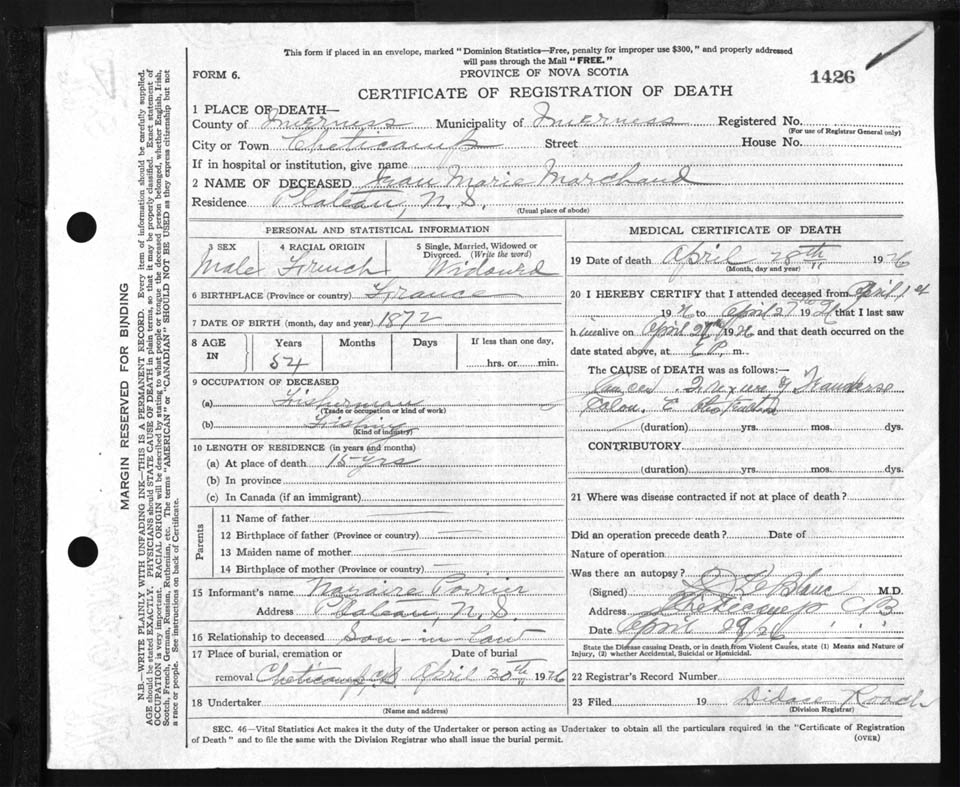 This form if placed in an envelope, marked "Dominion Statistics—Free, penalty for improper use $300," and properly addressed
will pass through the Mail "FREE."
FORM 6.
PROVINCE OF NOVA SCOTIA
1426
CERTIFICATE OF REGISTRATION OF DEATH
1 PLACE OF DEATH—
County of Inverness Municipality of Inverness Registered No.
(For use of Registrar General only)
City or Town Cheticamp Street House No.
If in hospital or institution, give name
2 NAME OF DECEASED Jean Marie Marchand
Residence Plateau, N.S.
(Usual place of abode)
PERSONAL AND STATISTICAL INFORMATION
3 SEX 4 RACIAL ORIGIN 5 Single, Married, Widowed or
Divorced. (Write the word)
Male French Widowed
6 BIRTHPLACE (Province or country) France
7 DATE OF BIRTH (month, day and year) 1872
8 AGE IN Years Months Days If less than one day,
54 hrs. or min.
9 OCCUPATION OF DECEASED
(a) Fisherman
(Trade or occupation or kind of work)
(b) Fishing
(Kind of industry)
10 LENGTH OF RESIDENCE (in years and months)
(a) At place of death 15 yrs
(b) In province
(c) In Canada (if an immigrant)
Parents
11 Name of father
12 Birthplace of father (Province or country)
13 Maiden name of mother
14 Birthplace of mother (Province or country)
15 Informant's name Poirier
Address Plateau, N.S.
16 Relationship to deceased Son-in-law
17 Place of burial, cremation or Date of burial
removal Cheticamp, CB April 30th 1926
18 Undertaker
(Name and address)
MEDICAL CERTIFICATE OF DEATH
19 Date of death April 28th 1926
(Month, day and year)
20 I HEREBY CERTIFY that I attended deceased from April 1st
1926 to April 27th 1926 that I last saw
h im alive on April 27th 1926 and that death occurred on
date stated above, at P. m.
The CAUSE of DEATH was as follows:—
Cancer Flexure of Transverse
Colon
(duration) yrs. mos. dys.
CONTRIBUTORY
(duration) yrs. mos. dys.
21 Where was disease contracted if not at place of death?
Did an operation precede death? Date of
Nature of operation
Was there an autopsy?
(Signed) L. LeBlanc M.D.
Address Cheticamp CB
Date April 29/26
State the Disease causing Death, or in death from Violent Causes, state (1) Means and Nature of
Injury, (2) whether Accidental, Suicidal or Homicidal.
22 Registrar's Record Number
23 Filed 19 Didace Roach
(Division Registrar)
SEC. 46—Vital Statistics Act makes it the duty of the Undertaker or person acting as Undertaker to obtain all the particulars required in the "Certificate of Registration
of Death" and to file the same with the Division Registrar who shall issue the burial permit.
(OVER)
MARGIN RESERVED FOR BINDING
N.B.—WRITE PLAINLY WITH UNFADING INK—THIS IS A PERMANENT RECORD. Every item of information should be carefully supplied.
AGE should be stated EXACTLY. PHYSICIANS should STATE CAUSE OF DEATH in plain terms, so that it may be properly classified. Exact statement of
OCCUPATION is very important. RACIAL ORIGIN will be described by stating to what people or tongue the deceased person belonged, whether English, Irish,
Scotch, French, German, Russian, Ruthenian, etc. The terms "AMERICAN" or "CANADIAN" SHOULD NOT BE USED as they express citizenship but not
a race or people. See instructions on back of Certificate.